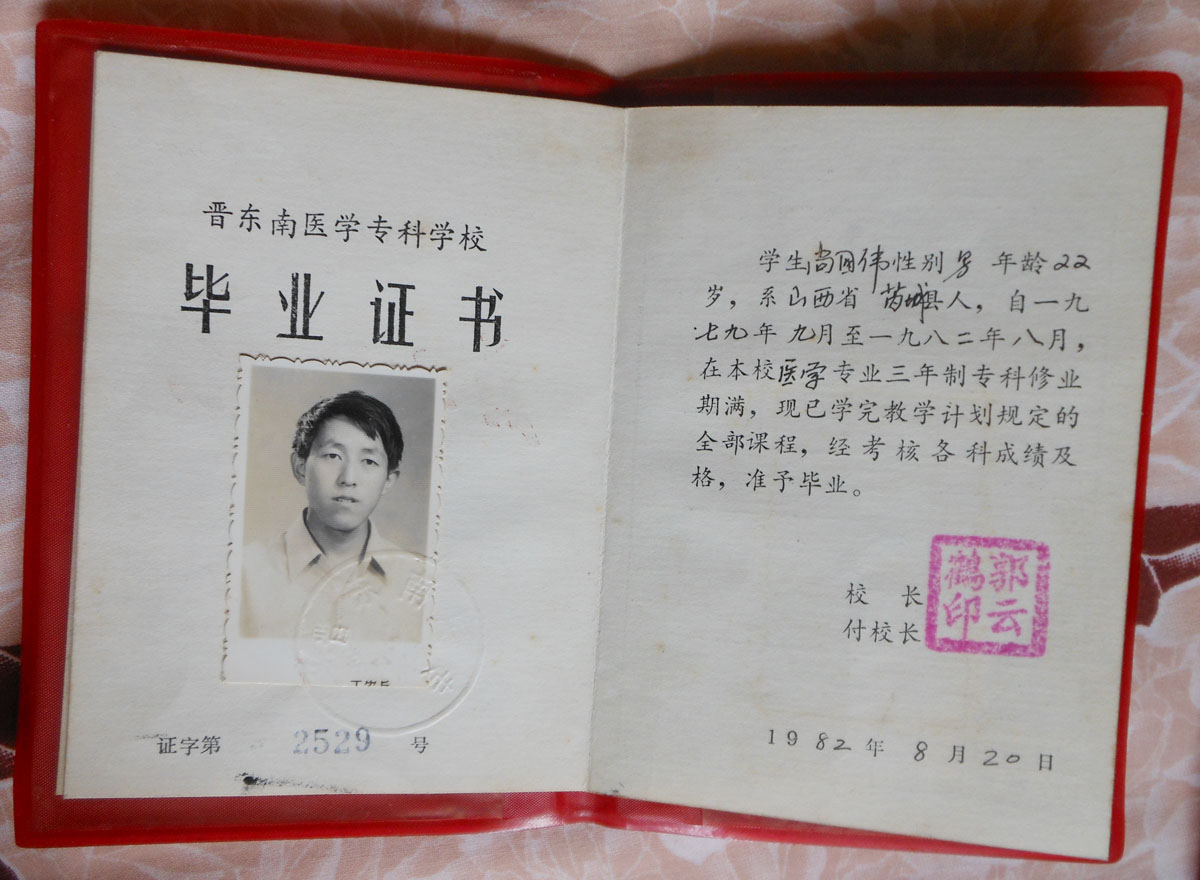 晋东南医学专科学校
毕业证书
证字第 2529 号
学生尚国伟性别男 年龄22
岁，系山西省 芮城县人，自一九
七九年 九月至一九八二年八月，
在本校医学专业三年制专科修业
期满，现已学完教学计划规定的
全部课程，经考核各科成绩及
格，准予毕业。
校 长
付校长
郭云
鹤印
1982年 8月20日